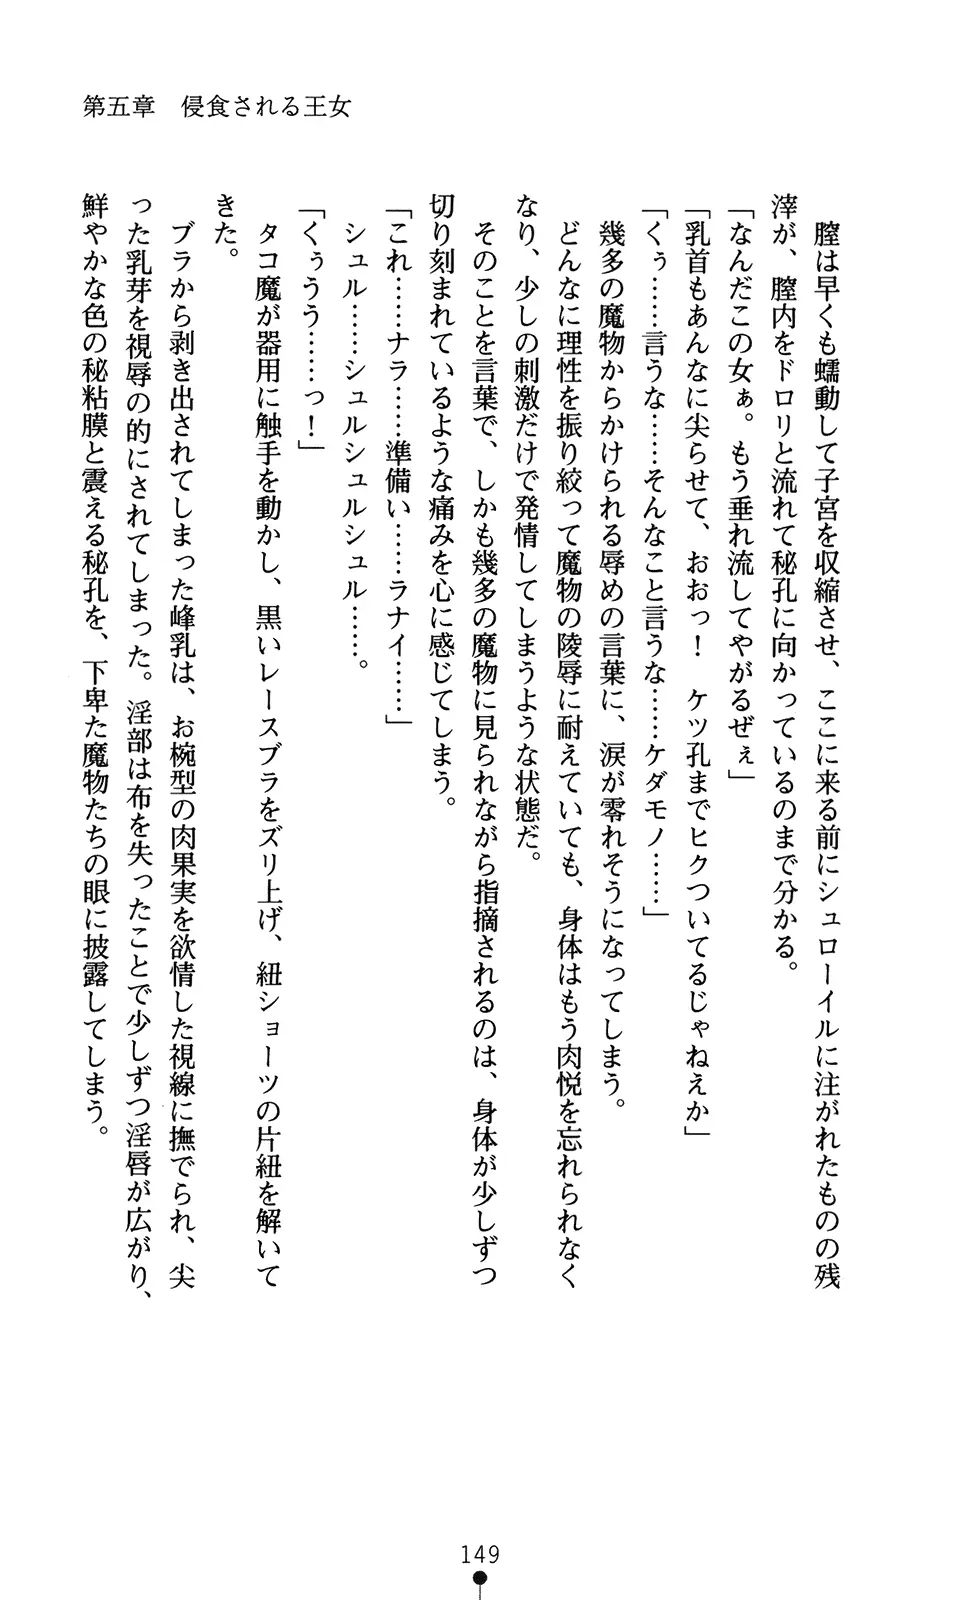 第五章　侵食される王女
　膣は早くも蠕動して子宮を収縮させ、ここに来る前にシュローイルに注がれたものの残
滓が、膣内をドロリと流れて秘孔に向かっているのまで分かる。
「なんだこの女ぁ。もう垂れ流してやがるぜぇ」
「乳首もあんなに尖らせて、おおっ！　ケツ孔までヒクついてるじゃねえか」
「くぅ……言うな……そんなこと言うな……ケダモノ……」
　幾多の魔物からかけられる辱めの言葉に、涙が零れそうになってしまう。
　どんなに理性を振り絞って魔物の陵辱に耐えていても、身体はもう肉悦を忘れられなく
なり、少しの刺激だけで発情してしまうような状態だ。
　そのことを言葉で、しかも幾多の魔物に見られながら指摘されるのは、身体が少しずつ
切り刻まれているような痛みを心に感じてしまう。
「これ……ナラ……準備い……ラナイ……」
　シュル……シュルシュルシュル……。
「くぅうう……っ！」
　タコ魔が器用に触手を動かし、黒いレースブラをズリ上げ、紐ショーツの片紐を解いて
きた。
　ブラから剥き出されてしまった峰乳は、お椀型の肉果実を欲情した視線に撫でられ、尖
った乳芽を視辱の的にされてしまった。淫部は布を失ったことで少しずつ淫唇が広がり、
鮮やかな色の秘粘膜と震える秘孔を、下卑た魔物たちの眼に披露してしまう。
149